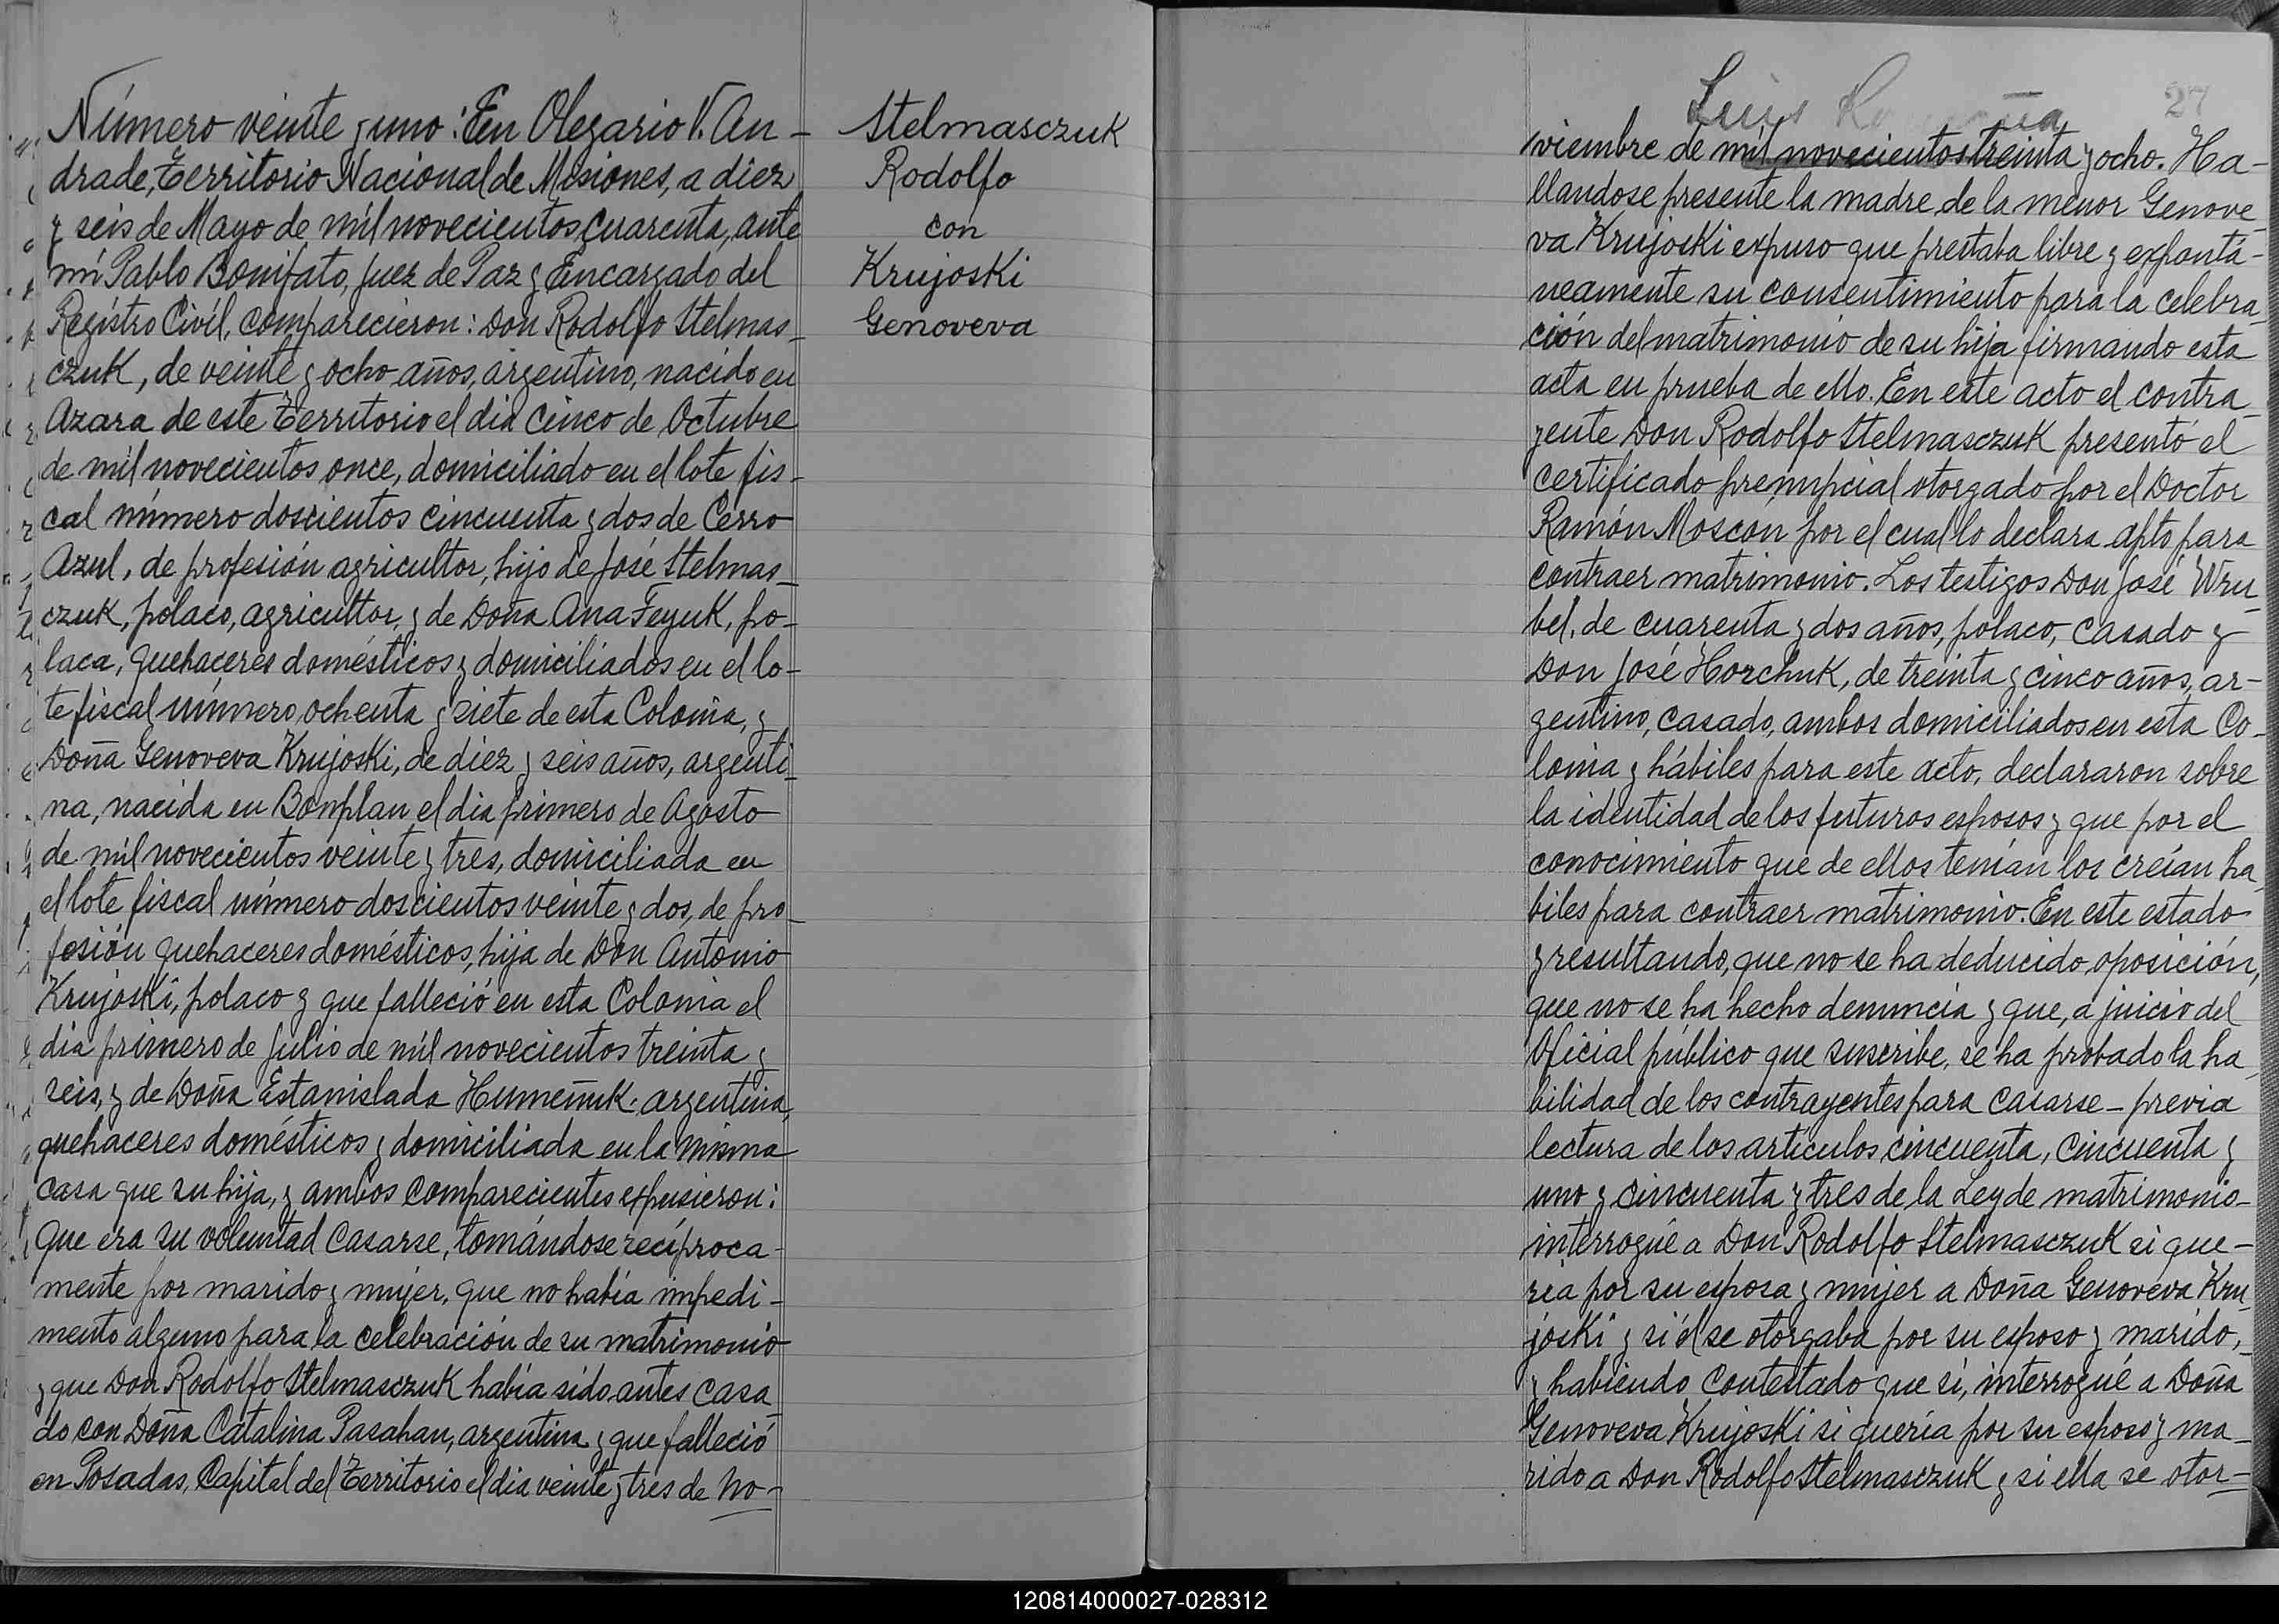 Número veinte y uno: En Olegario V. An-
drade, Territorio Nacional de Misiones, a diez
y seis de Mayo de mil novecientos cuarenta, ante
mí Pablo Bonifato, Juez de Paz y Encargado del
Registro Civil, comparecieron: Don Rodolfo Stelmas-
czuk, de veinte y ocho años, argentino, nacido en
Azara de este Territorio el dia cinco de Octubre
de mil novecientos once, domiciliado en el lote fis-
cal número doscientos cincuenta y dos de Cerro
Azul, de profesión agricultor, hijo de José Stelmas-
czuk, polaco, agricultor, y de Doña Ana Feyuk, po-
laca, quehaceres domésticos y domiciliados en el lo-
te fiscal número ochenta y siete de esta Colonia, y
Doña Genoveva Krujoski, de diez y seis años, argenti-
na, nacida en Bonplan el dia primero de Agosto
de mil novecientos veinte y tres, domiciliada en
el lote fiscal número doscientos veinte y dos, de pro-
fesión quehaceres domésticos, hija de Don Antonio
Krujoski, polaco y que falleció en esta Colonia el
dia primero de Julio de mil novecientos treinta y
seis, y de Doña Estanislada Humeñuk, argentina,
quehaceres domésticos y domiciliada en la misma
casa que su hija, y ambos comparecientes expusieron:
Que era su voluntad casarse, tomándose recíproca-
mente por marido y mujer, que no había impedi-
mento alguno para la celebración de su matrimonio
y que Don Rodolfo Stelmasczuk había sido antes casa-
do con Doña Catalina Pasahan, argentina y que falleció
en Posadas, Capital del Territorio el dia veinte y tres de No-
Stelmasczuk
Rodolfo
con
Krujoski
Genoveva
Luis
27
viembre de mil novecientos treinta y ocho. Ha-
llandose presente la madre de la menor Genove-
va Krujoski expuso que prestaba libre y expontá-
neamente su consentimiento para la celebra-
ción del matrimonio de su hija firmando esta
acta en prueba de ello. En este acto el contra-
yente Don Rodolfo Stelmasczuk presentó el
certificado prenupcial otorgado por el Doctor
Ramón Moscón por el cual lo declara apto para
contraer matrimonio. Los testigos Don José Wru-
bel, de cuarenta y dos años, polaco, casado y
Don José Horchuk, de treinta y cinco años, ar-
gentino, casado, ambos domiciliados en esta Co-
lonia y hábiles para este acto, declararon sobre
la identidad de los futuros esposos y que por el
conocimiento que de ellos tenían los creían ha-
biles para contraer matrimonio. En este estado
y resultando, que no se ha deducido oposición,
que no se ha hecho denuncia y que, a juicio del
Oficial público que suscribe, se ha probado la ha-
bilidad de los contrayentes para casarse - previa
lectura de los artículos cincuenta, cincuenta y
uno y cincuenta y tres de la Ley de matrimonio -
interrogué a Don Rodolfo Stelmasczuk si que-
ría por su esposa y mujer a Doña Genoveva Kru-
joski y si él se otorgaba por su esposo y marido,
y habiendo contestado que sí, interrogué a Doña
Genoveva Krujoski si quería por su esposo y ma-
rido a Don Rodolfo Stelmasczuk y si ella se otor-
120814000027-028312